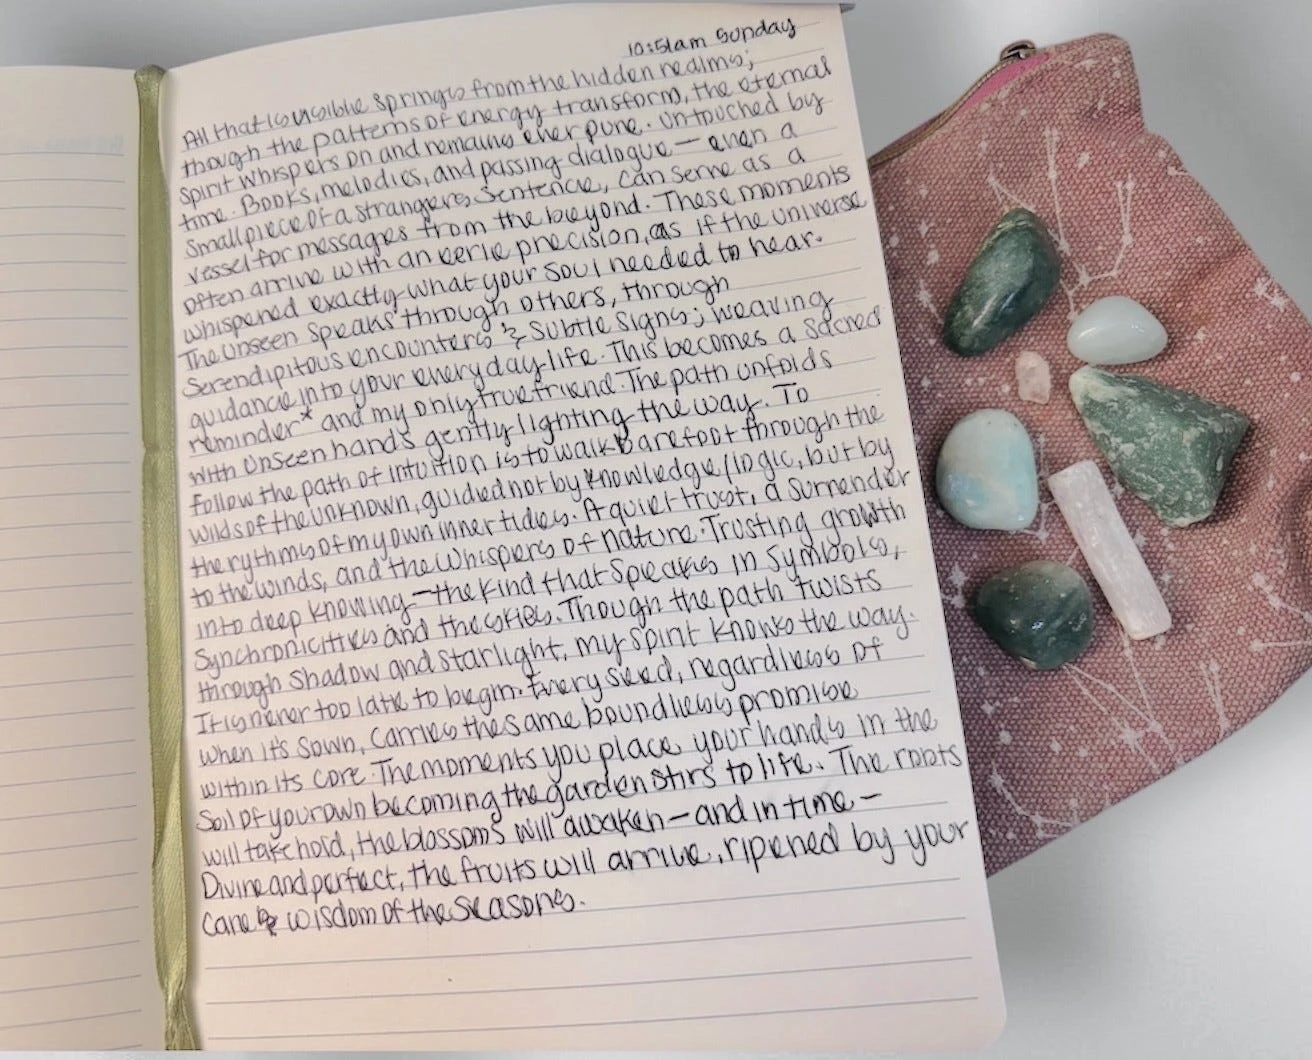 10:51am Sunday
All that is visible springs from the hidden realms;
though the patterns of energy transform, the eternal
spirit whispers on and remains ever pure. Untouched by
time. Books, melodies, and passing dialogue — even a
Small piece of a strangers sentence, can serve as a
vessel for messages from the beyond. These moments
often arrive with an eerie precision, as if the universe
whispered exactly what your soul needed to hear.
The Unseen speaks through others, through
Serendipitous encounters & subtle signs; weaving
guidance into your everyday life. This becomes a sacred
reminder* and my only true friend. The path unfolds
with unseen hands gently lighting the way. To
follow the path of intuition is to walk barefoot through the
wilds of the unknown, guided not by knowledge/logic, but by
the rythms of my own inner tides. A quiet trust, a surrender
to the winds, and the whispers of nature. Trusting growth
into deep knowing — the kind that speaks in symbols,
Synchronicities and the skies. Though the path twists
through shadow and starlight, my spirit knows the way.
It is never too late to begin. Every seed, regardless of
when it's sown, carries the same boundless promise
within its core. The moments you place your hands in the
Soil of your own becoming the garden stirs to life. The roots
will take hold, the blossoms will awaken — and in time —
Divine and perfect, the fruits will arrive, ripened by your
care & wisdom of the seasons.